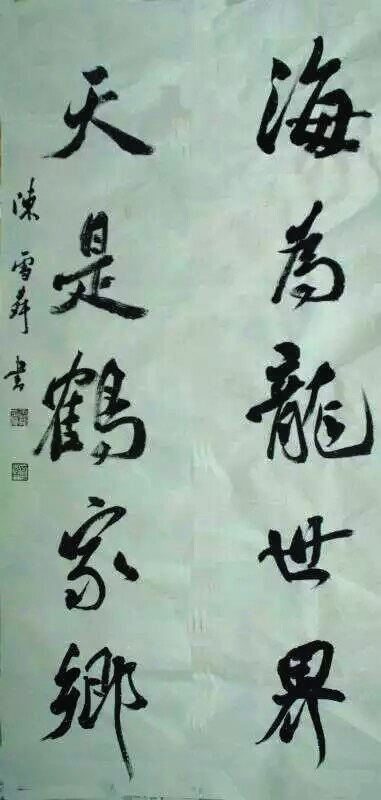 海為龍世界
天是鶴家鄉
陳雪舜書